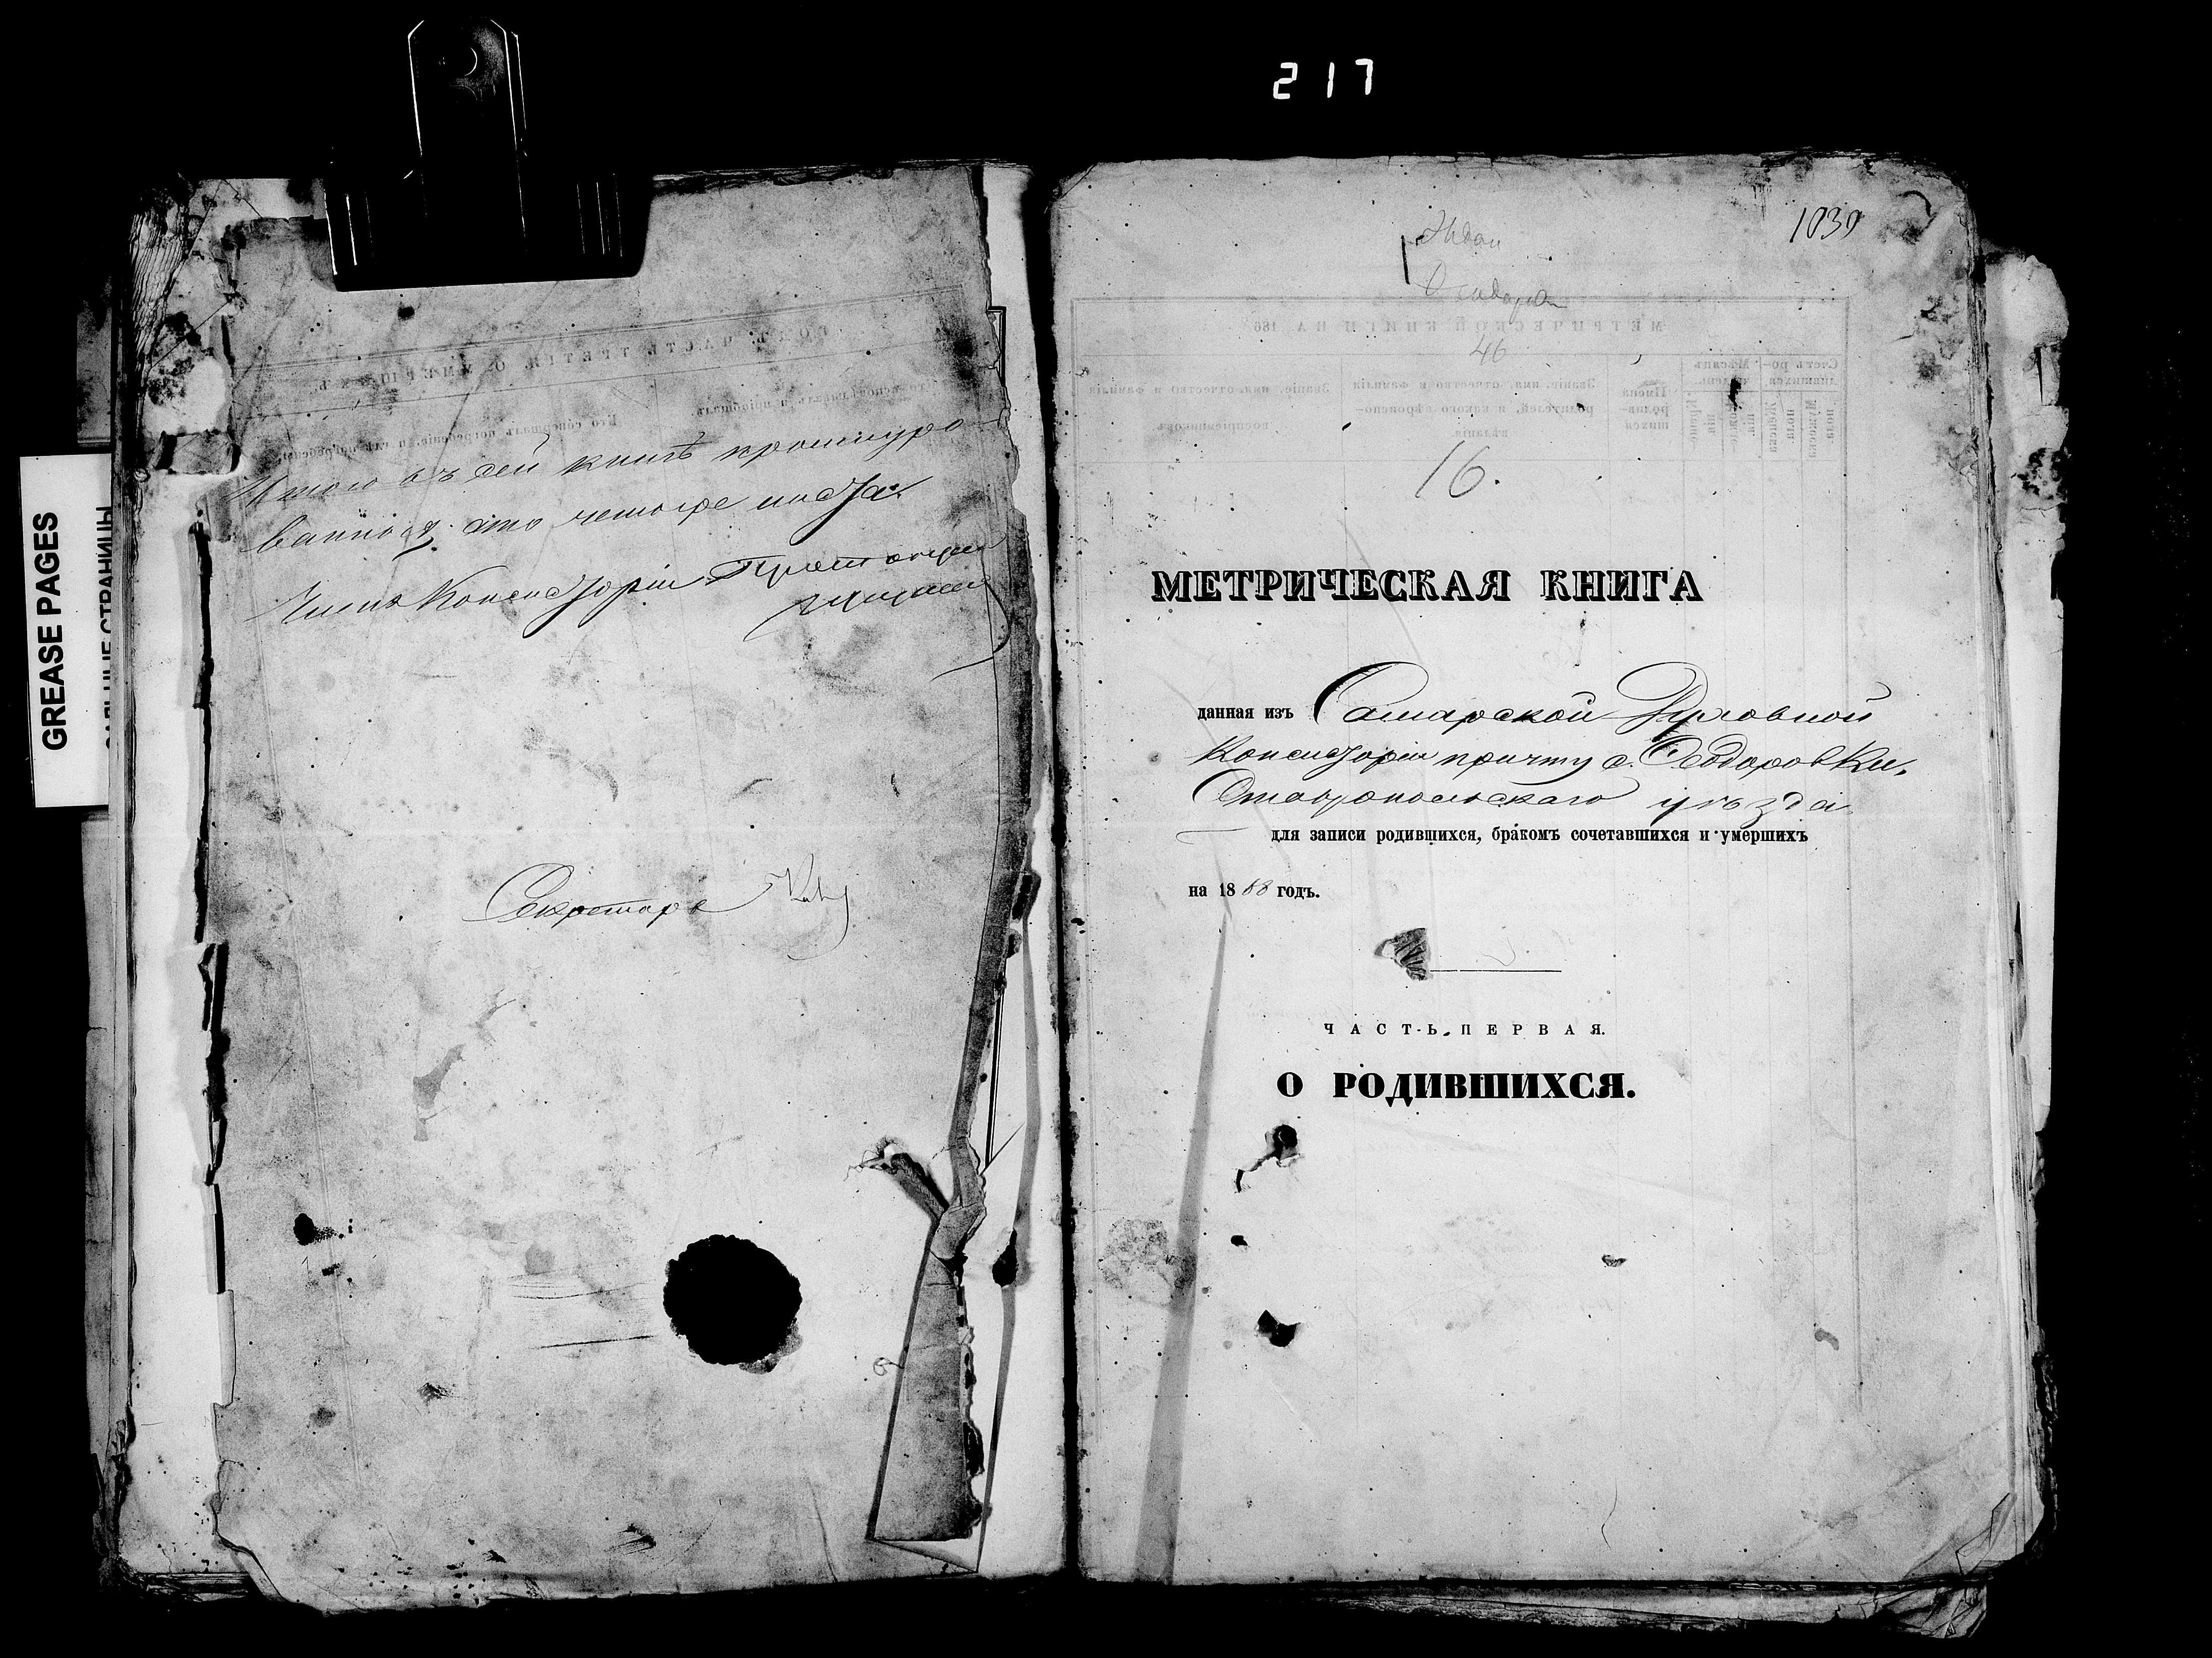 217
GREASE PAGES
САЛЬНЫЕ СТРАНИЦЫ
Итого въ сей книгѣ прошнуро-
ванной сто четыре листа.
Членъ Консисторіи Протоіерей
Секретарь
1039
46
16.
МЕТРИЧЕСКАЯ КНИГА
данная изъ Самарской Духовной
Консисторіи причту с. Ѳеодоровки,
Ставропольскаго уѣзда
для записи родившихся, бракомъ сочетавшихся и умершихъ
на 1868 годъ.
ЧАСТЬ ПЕРВАЯ.
О РОДИВШИХСЯ.